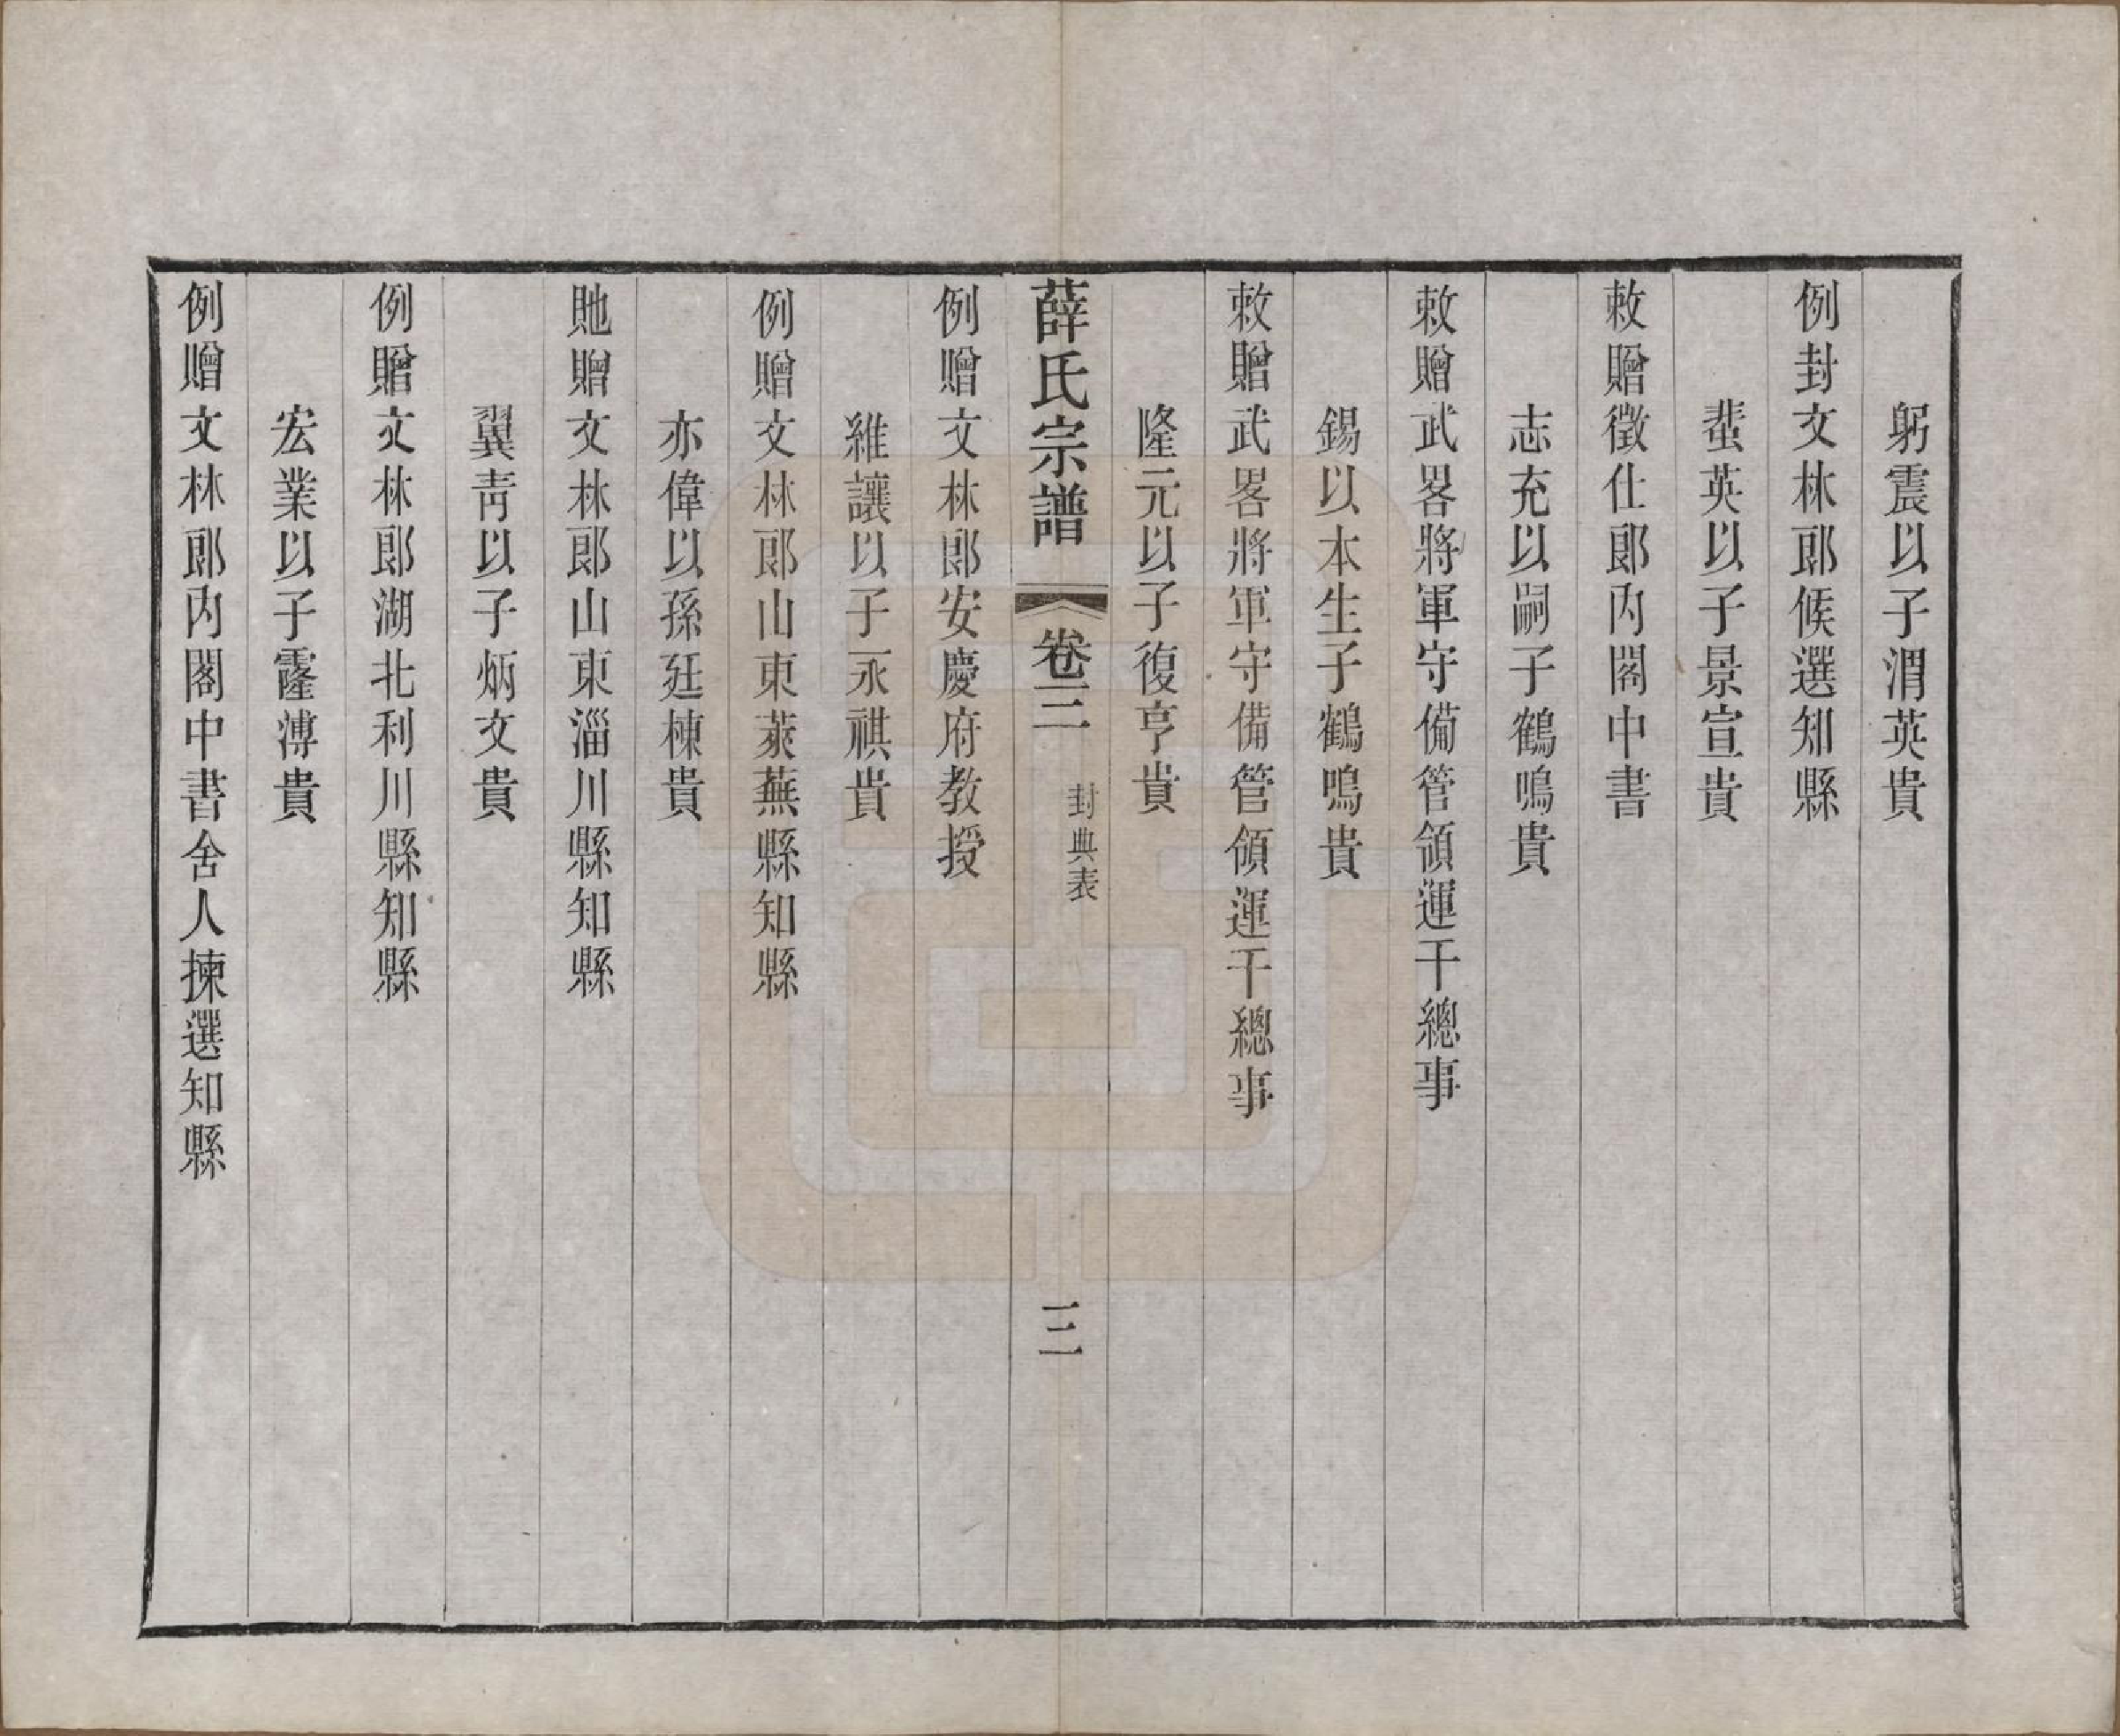 躬震以子渭英貴
例封文林郎候選知縣
蜚英以子景宣貴
敕贈徵仕郎內閣中書
志充以嗣子鶴鳴貴
敕贈武畧將軍守備管領運千總事
錫以本生子鶴鳴貴
敕贈武畧將軍守備管領運千總事
隆元以子復亨貴
薛氏宗譜 卷三 封典表 三
例贈文林郎安慶府教授
維讓以子永祺貴
例贈文林郎山東萊蕪縣知縣
亦偉以孫廷棟貴
貤贈文林郎山東淄川縣知縣
翼青以子炳文貴
例贈文林郎湖北利川縣知縣
宏業以子霳溥貴
例贈文林郎內閣中書舍人揀選知縣